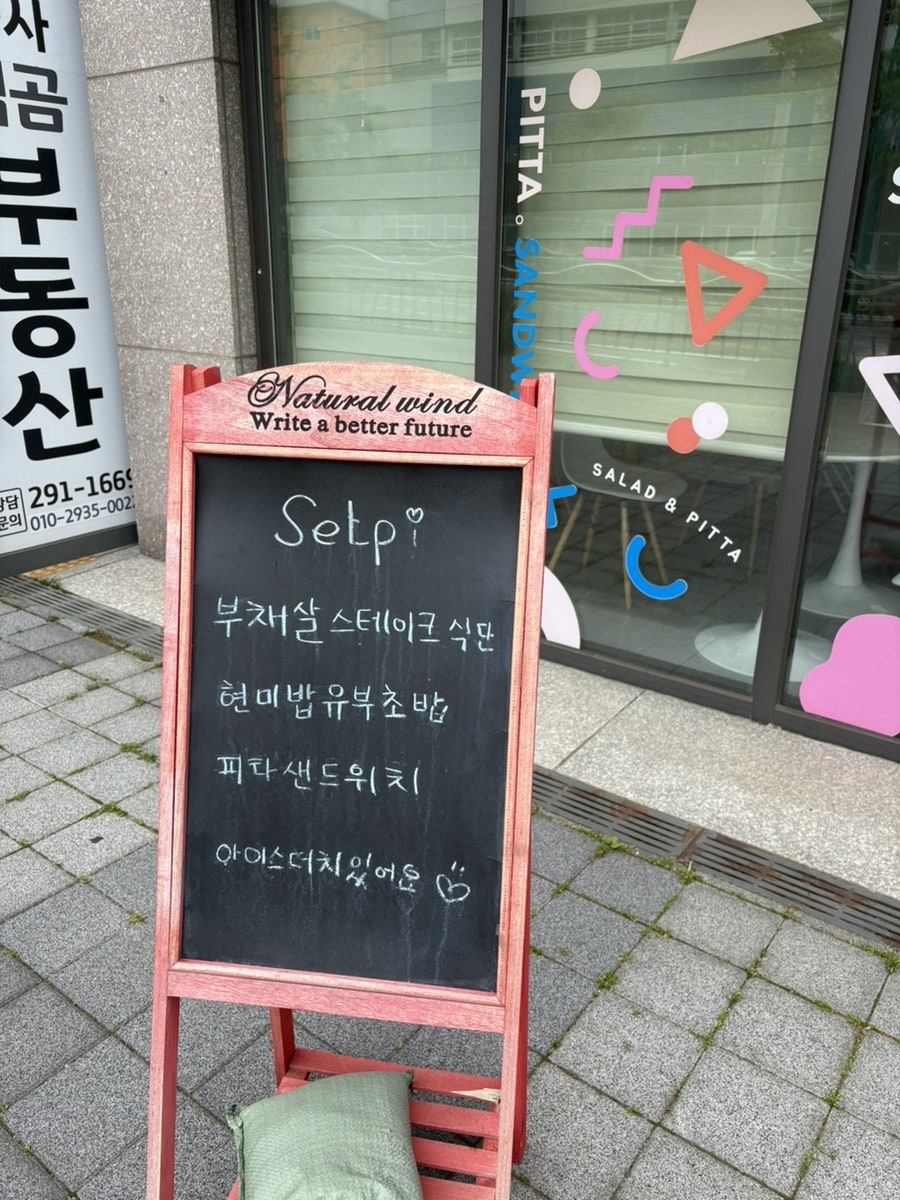 부동산
291-1669
010-2935-002
PITTA
SANDW
SALAD & PITTA
Natural wind
Write a better future
Setpi
부채살 스테이크 식단
현미밥유부초밥
피타샌드위치
아이스더치있어요